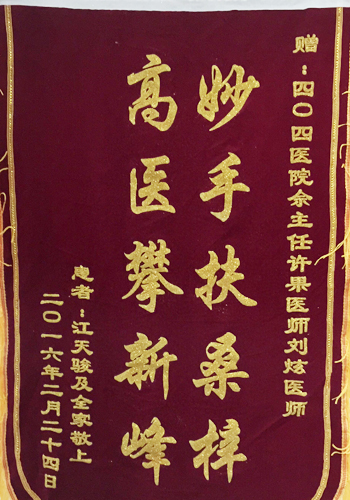 赠：四〇四医院余主任许果医师刘炫医师
妙手扶桑梓
高医攀新峰
患者：江天骏及全家敬上
二〇一六年二月二十四日